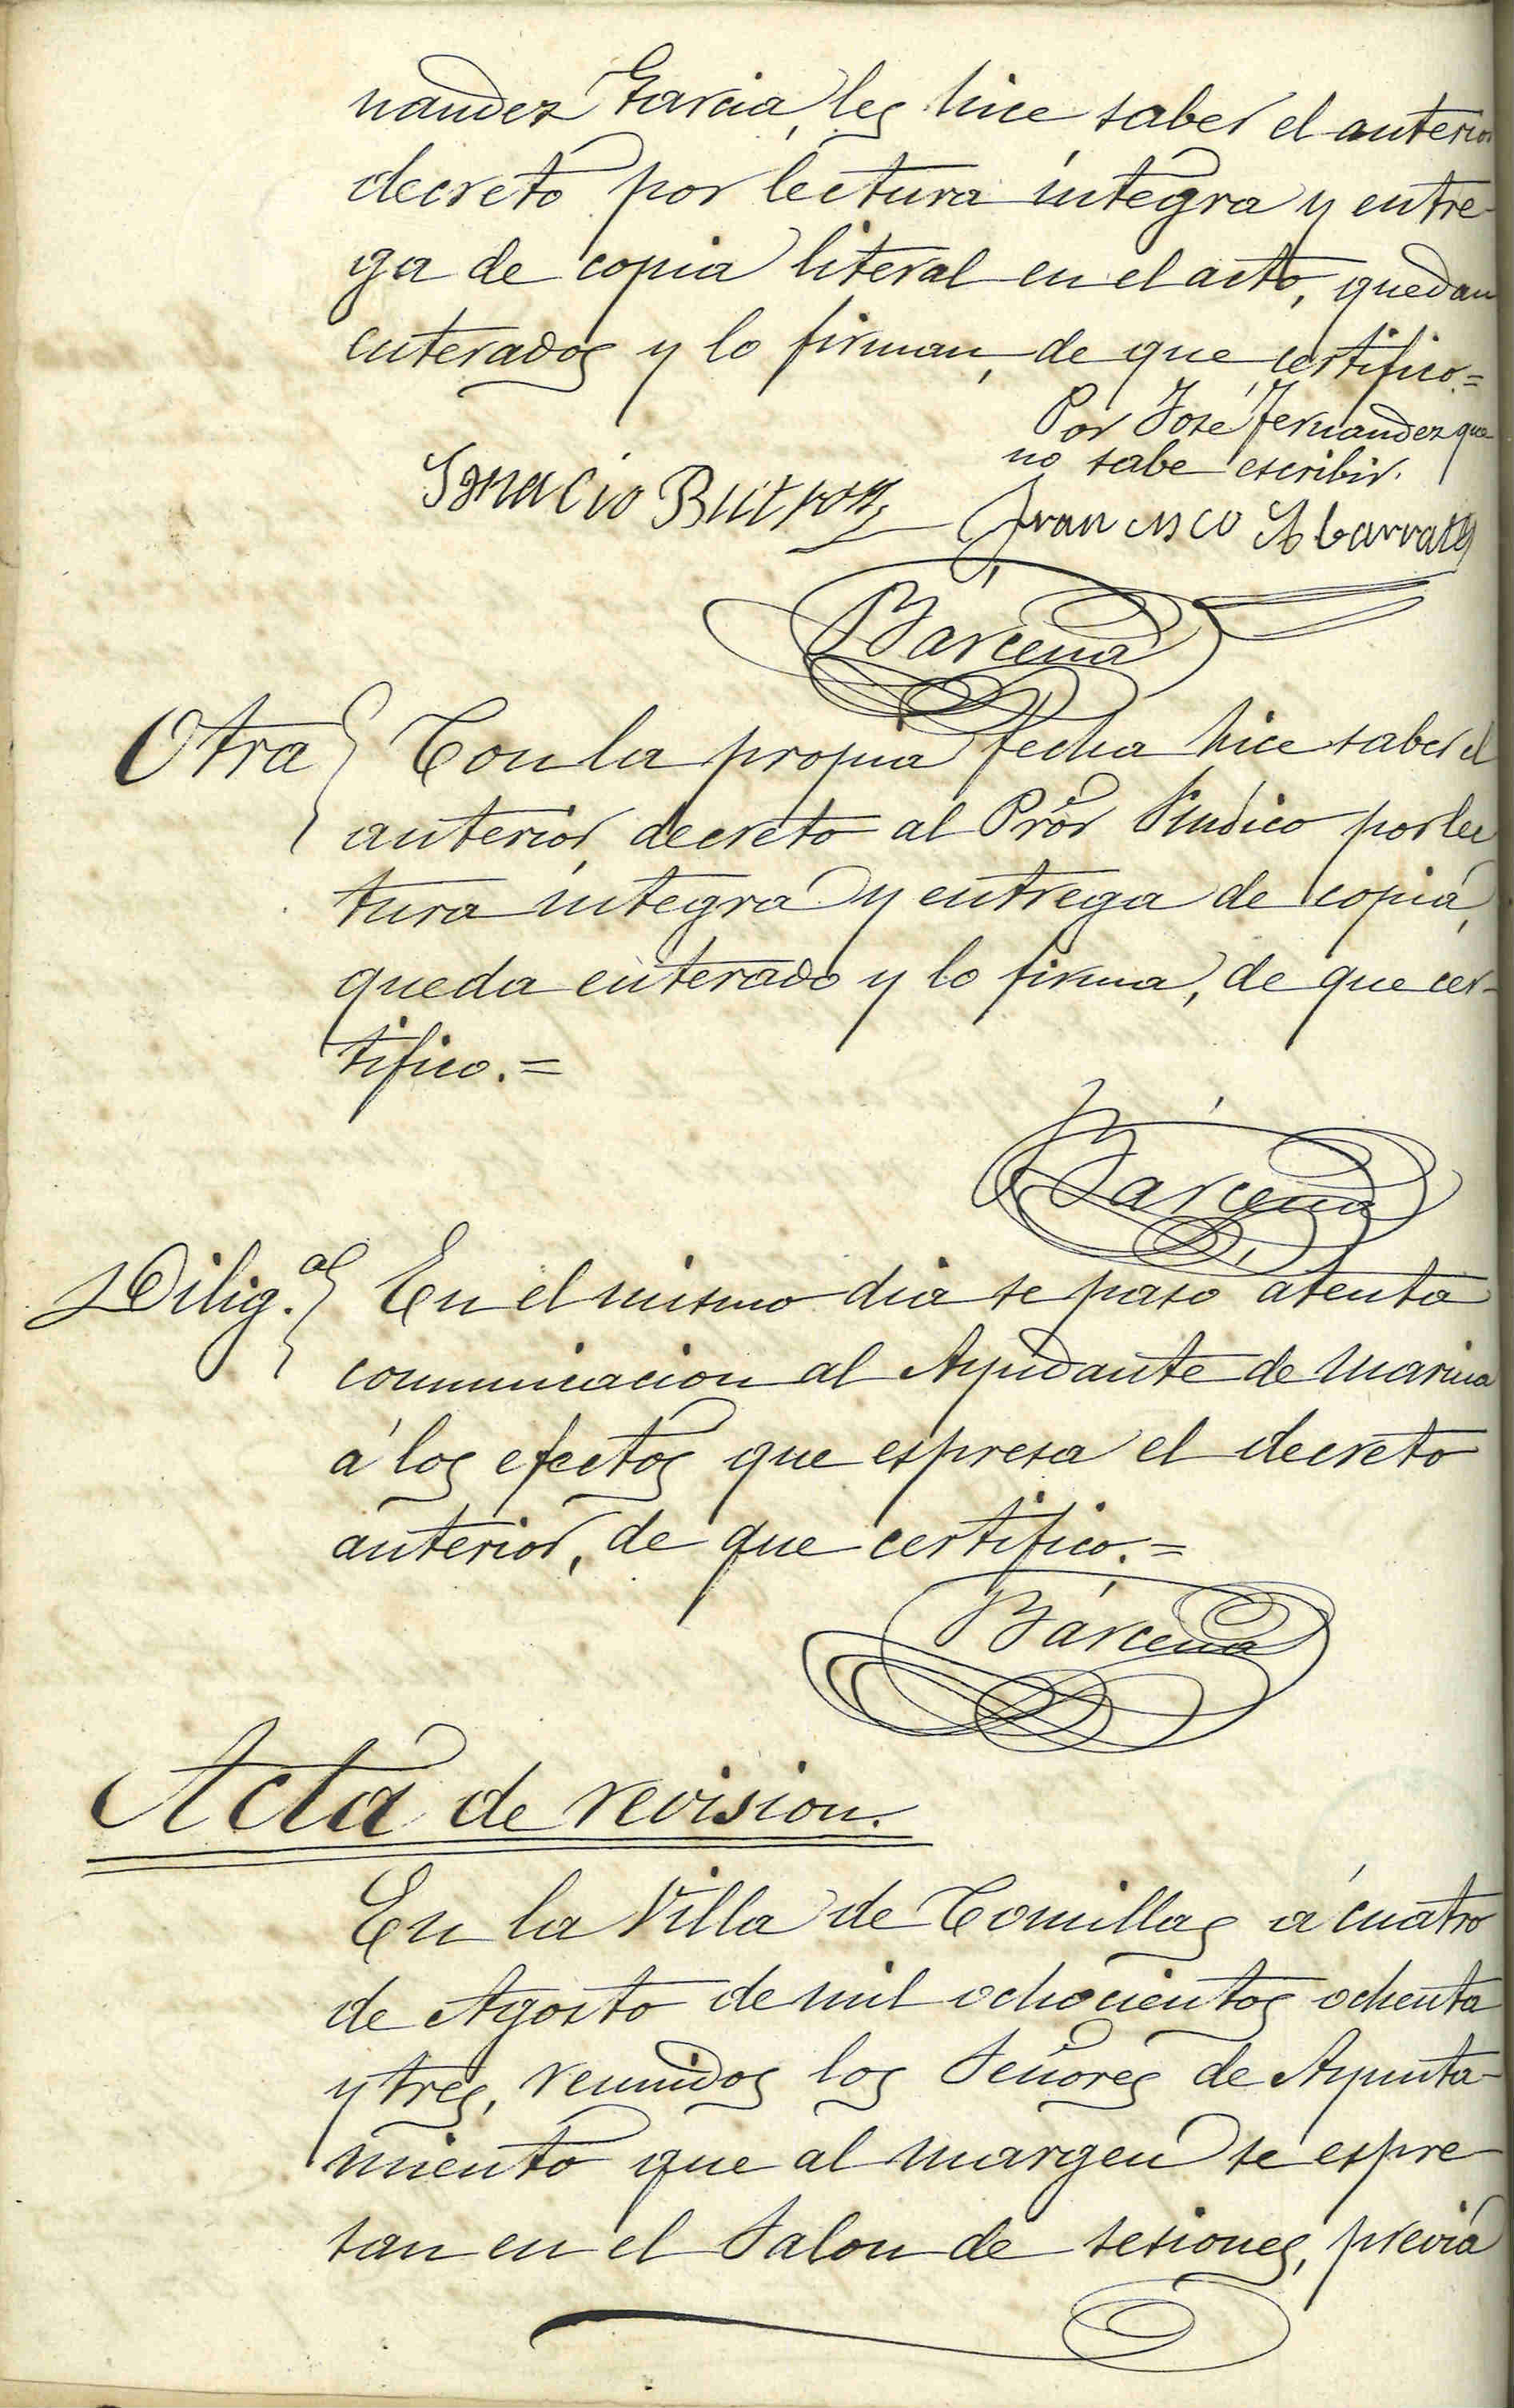 nandez Garcia, les hice saber el anterior
decreto por lectura integra y entre-
ga de copia literal en el acto, quedan
enterados y lo firman, de que certifico.=
Por José Fernandez que
no sabe escribir.
Ignacio Buitron
Francisco Abarrategi
Bárcena
Otra } Con la propia fecha hice saber el
anterior decreto al Pror Sindico por lec
tura integra y entrega de copia,
queda enterado y lo firma, de que cer-
tifico.=
Bárcena
Dilig.a } En el mismo dia se paso atenta
comunicacion al Ayudante de Marina
á los efectos que espresa el decreto
anterior, de que certifico.=
Bárcena
Acta de revision.
En la Villa de Comillas á cuatro
de Agosto de mil ochocientos ochenta
y tres, reunidos los Señores de Ayunta-
miento que al margen se espre-
san en el Salon de sesiones, previa